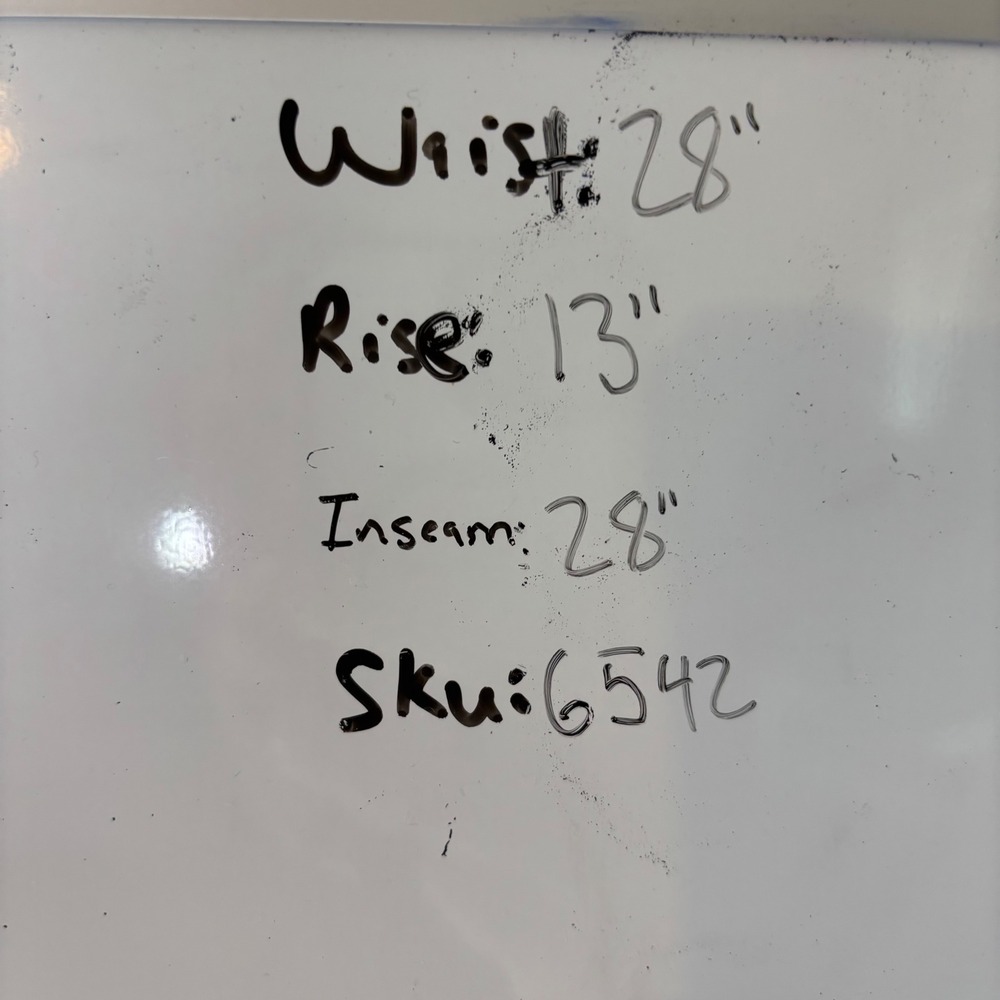 Waist: 28"
Rise: 13"
Inseam: 28"
Sku: 6542